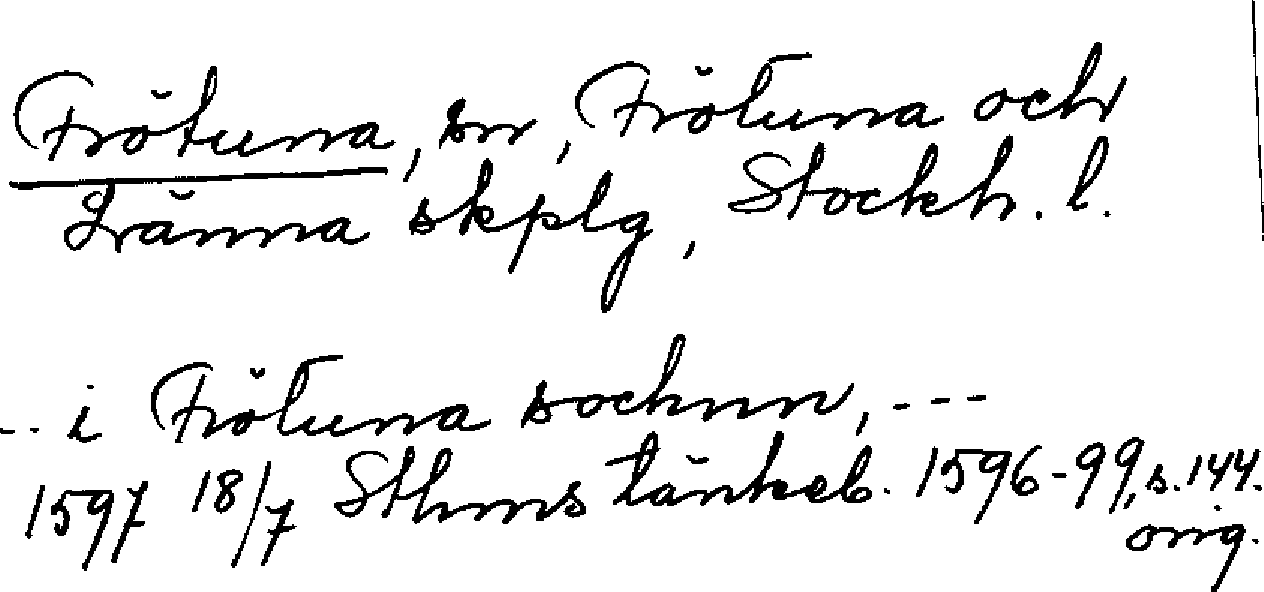 Frötuna, sn, Frötuna och
Länna skplg, Stockh. l.
-- i Frötuna sochnn, ---
1597 18/7 Sthms tänkeb. 1596-99, s. 144.
orig.